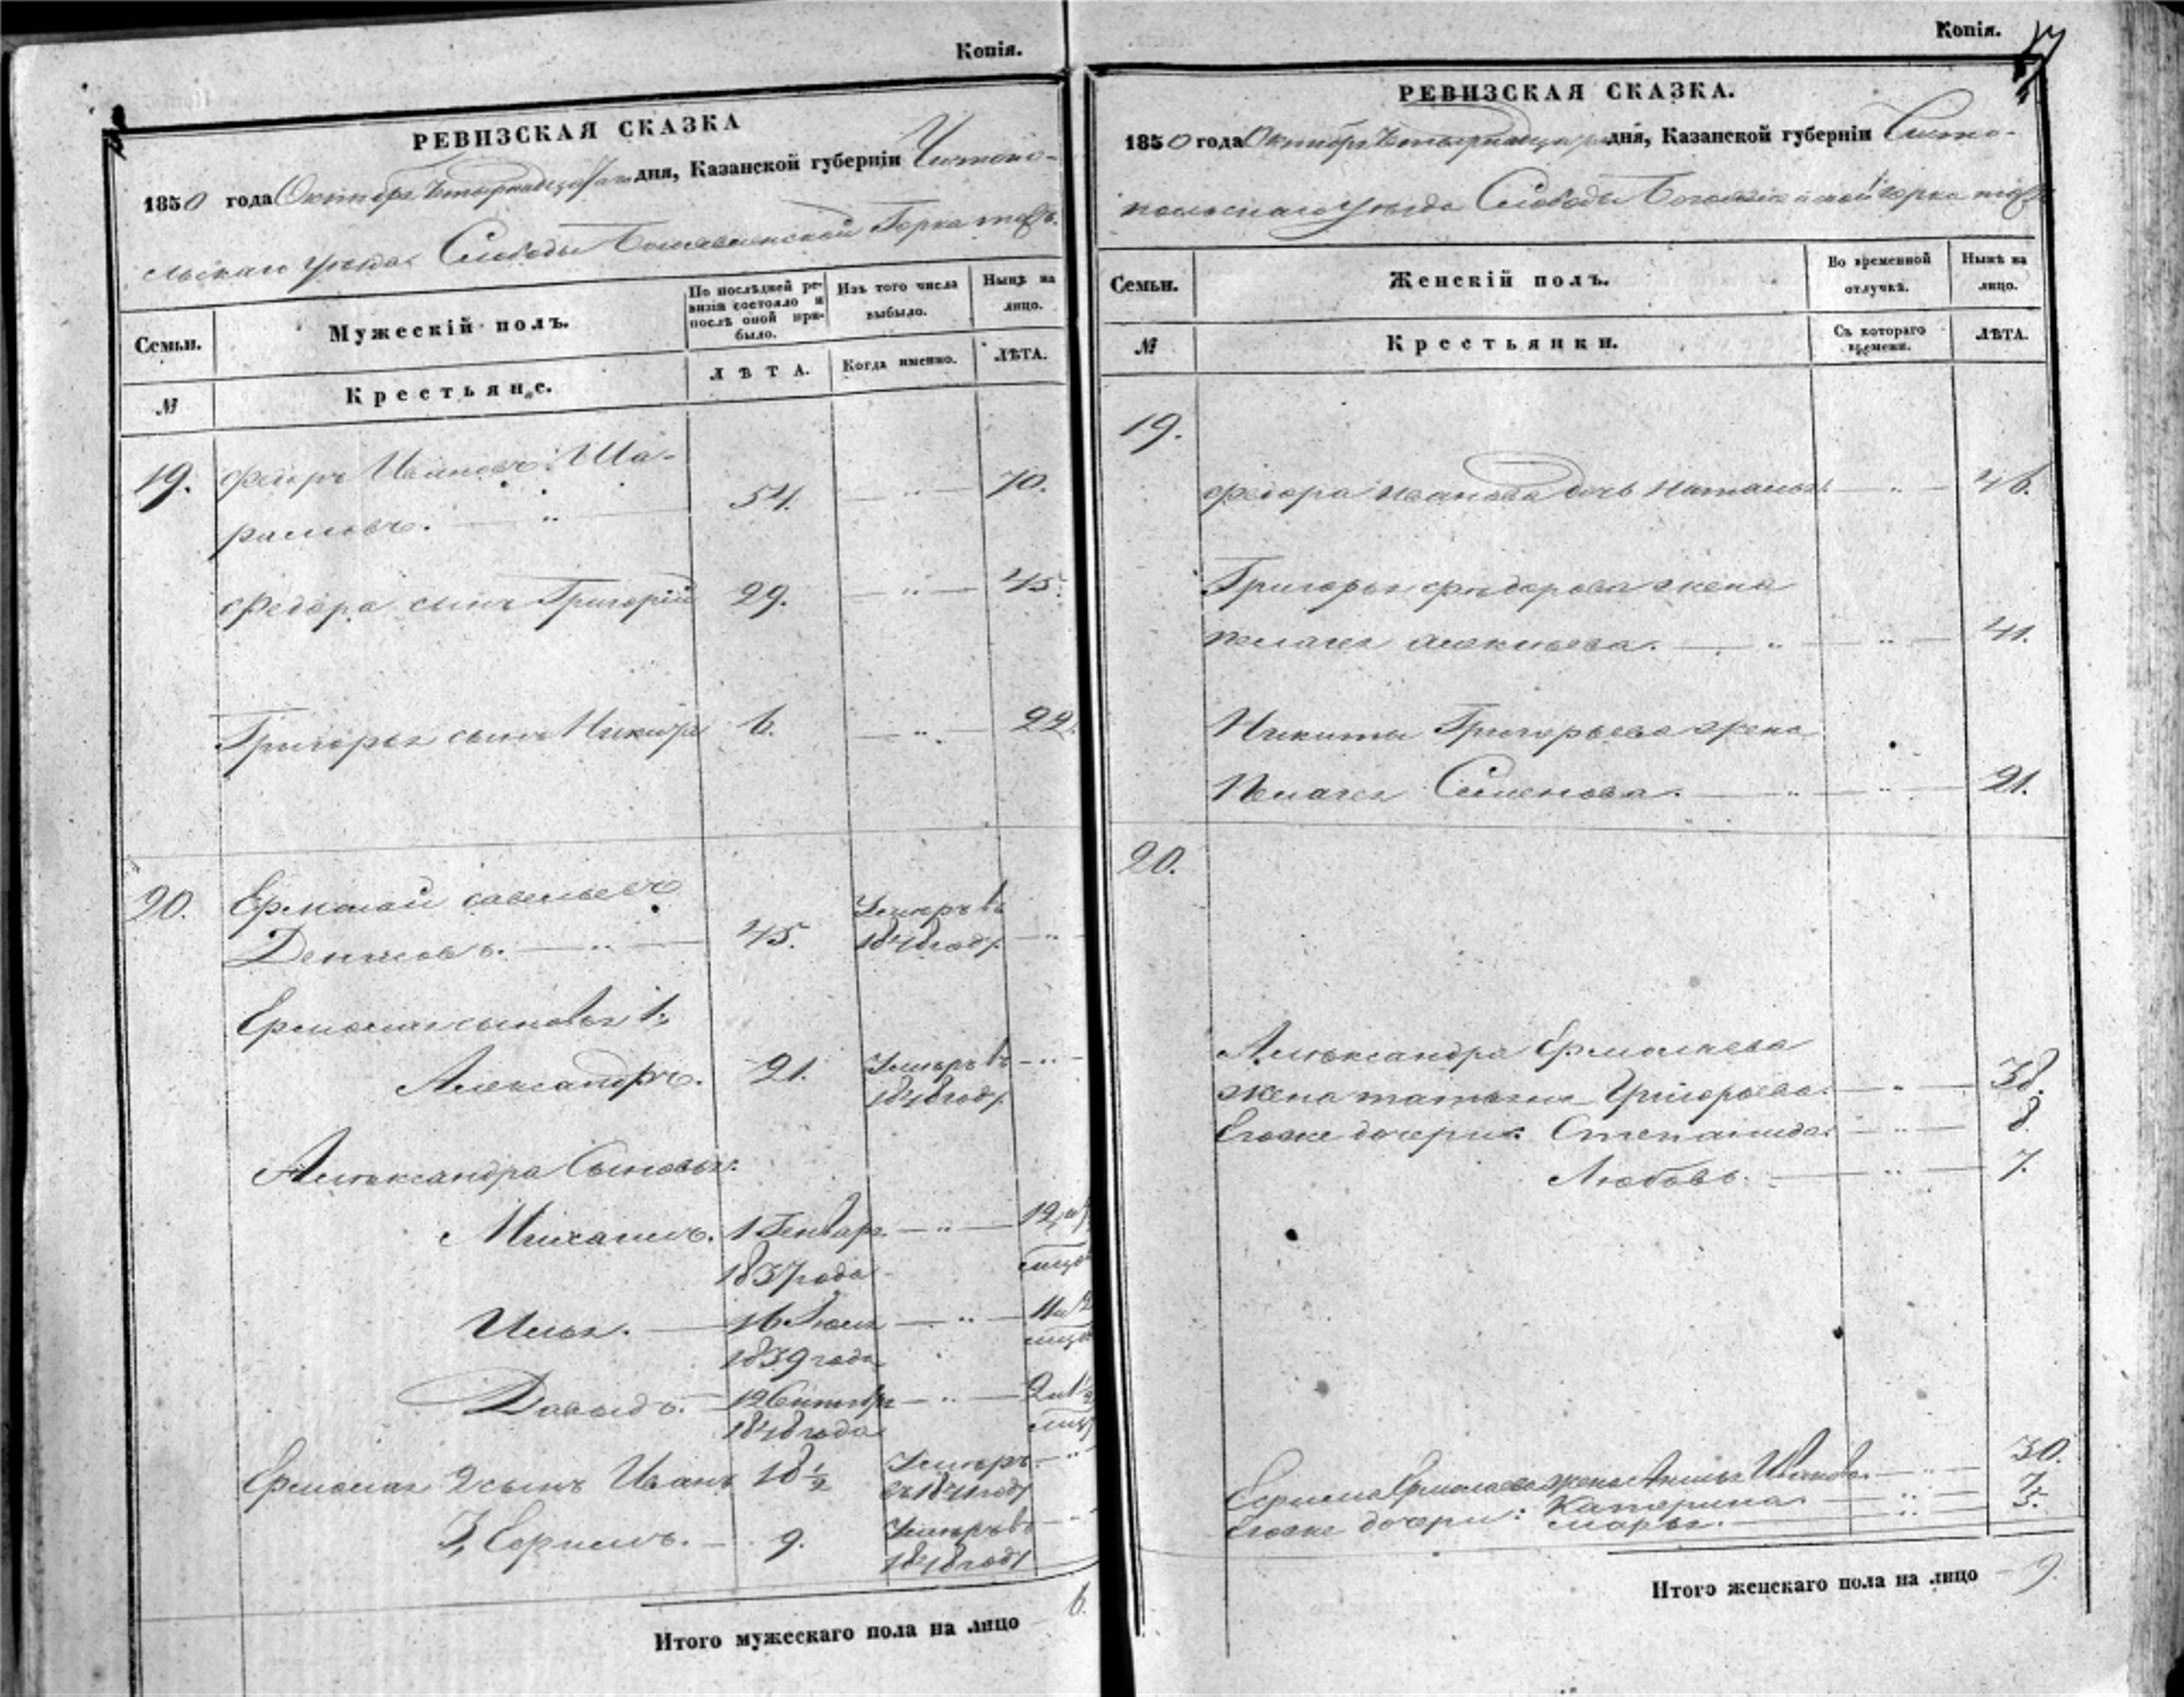 Копія.
РЕВИЗСКАЯ СКАЗКА
1850 года Октября Четырнадцатаго дня, Казанской губерніи Чистопо-
льскаго уѣзда Слободы Богоявленской Горка тожъ.
Семьи.
Мужескій полъ.
По послѣдней ре-
визіи состояло и
послѣ оной при-
было.
Изъ того числа
выбыло.
Нынѣ на
лицо.
№
Крестьяне.
ЛѢТА.
Когда именно.
ЛѢТА.
19. Федоръ Ивановъ Ша-
54. — " — 70.
Федора сынъ Григорій 29. — " — 45.
Григорья сынъ Никита 6. — " — 22.
20. Ермолай Савельевъ
Денисовъ. — " — 45. Умеръ въ 1848 году. — "
Ермолая сыновья 1,
Александръ. 21. Умеръ въ 1848 году. — " —
Алѣксандра Сыновья:
Михаилъ. 1 Генваря — " —
1837 года
Илья. — 16 Іюля — " —
1839 года
Давыдъ. — 12 Сентября — " —
1848 года
Ермолая 2 сынъ Иванъ 18 1/2 Умеръ — "
3, Корнилъ. — 9. Умеръ въ — "
1848 году
Итого мужескаго пола на лицо 6.
Копія.
РЕВИЗСКАЯ СКАЗКА.
1850 года Октября Четырнадцатаго дня, Казанской губерніи Чисто-
польскаго уѣзда Слободы Богоявленской Горка тожъ
Семьи.
Женскій полъ.
Во временной
отлучкѣ.
Нынѣ на
лицо.
№
Крестьянки.
Съ котораго
времени.
ЛѢТА.
19.
Федора Иванова дочь Наталья. — " — 46.
Григорья Фѣдорова жена
Пелагея Алексѣева. — " — " — 41.
Никиты Григорьева жена
Пелагея Семенова. — " — " — 21.
20.
Алѣксандра Ермолаева
жена Татьяна Григорьева. — " — 38.
Егоже дочери: Степанида. — " — 8.
Любовь. — " — 7.
Корнила Ермолаева жена Анна Иванова. — " — 30.
Егоже дочери: Катерина — " — 7.
Марья. — " — 5.
Итого женскаго пола на лицо — 9.